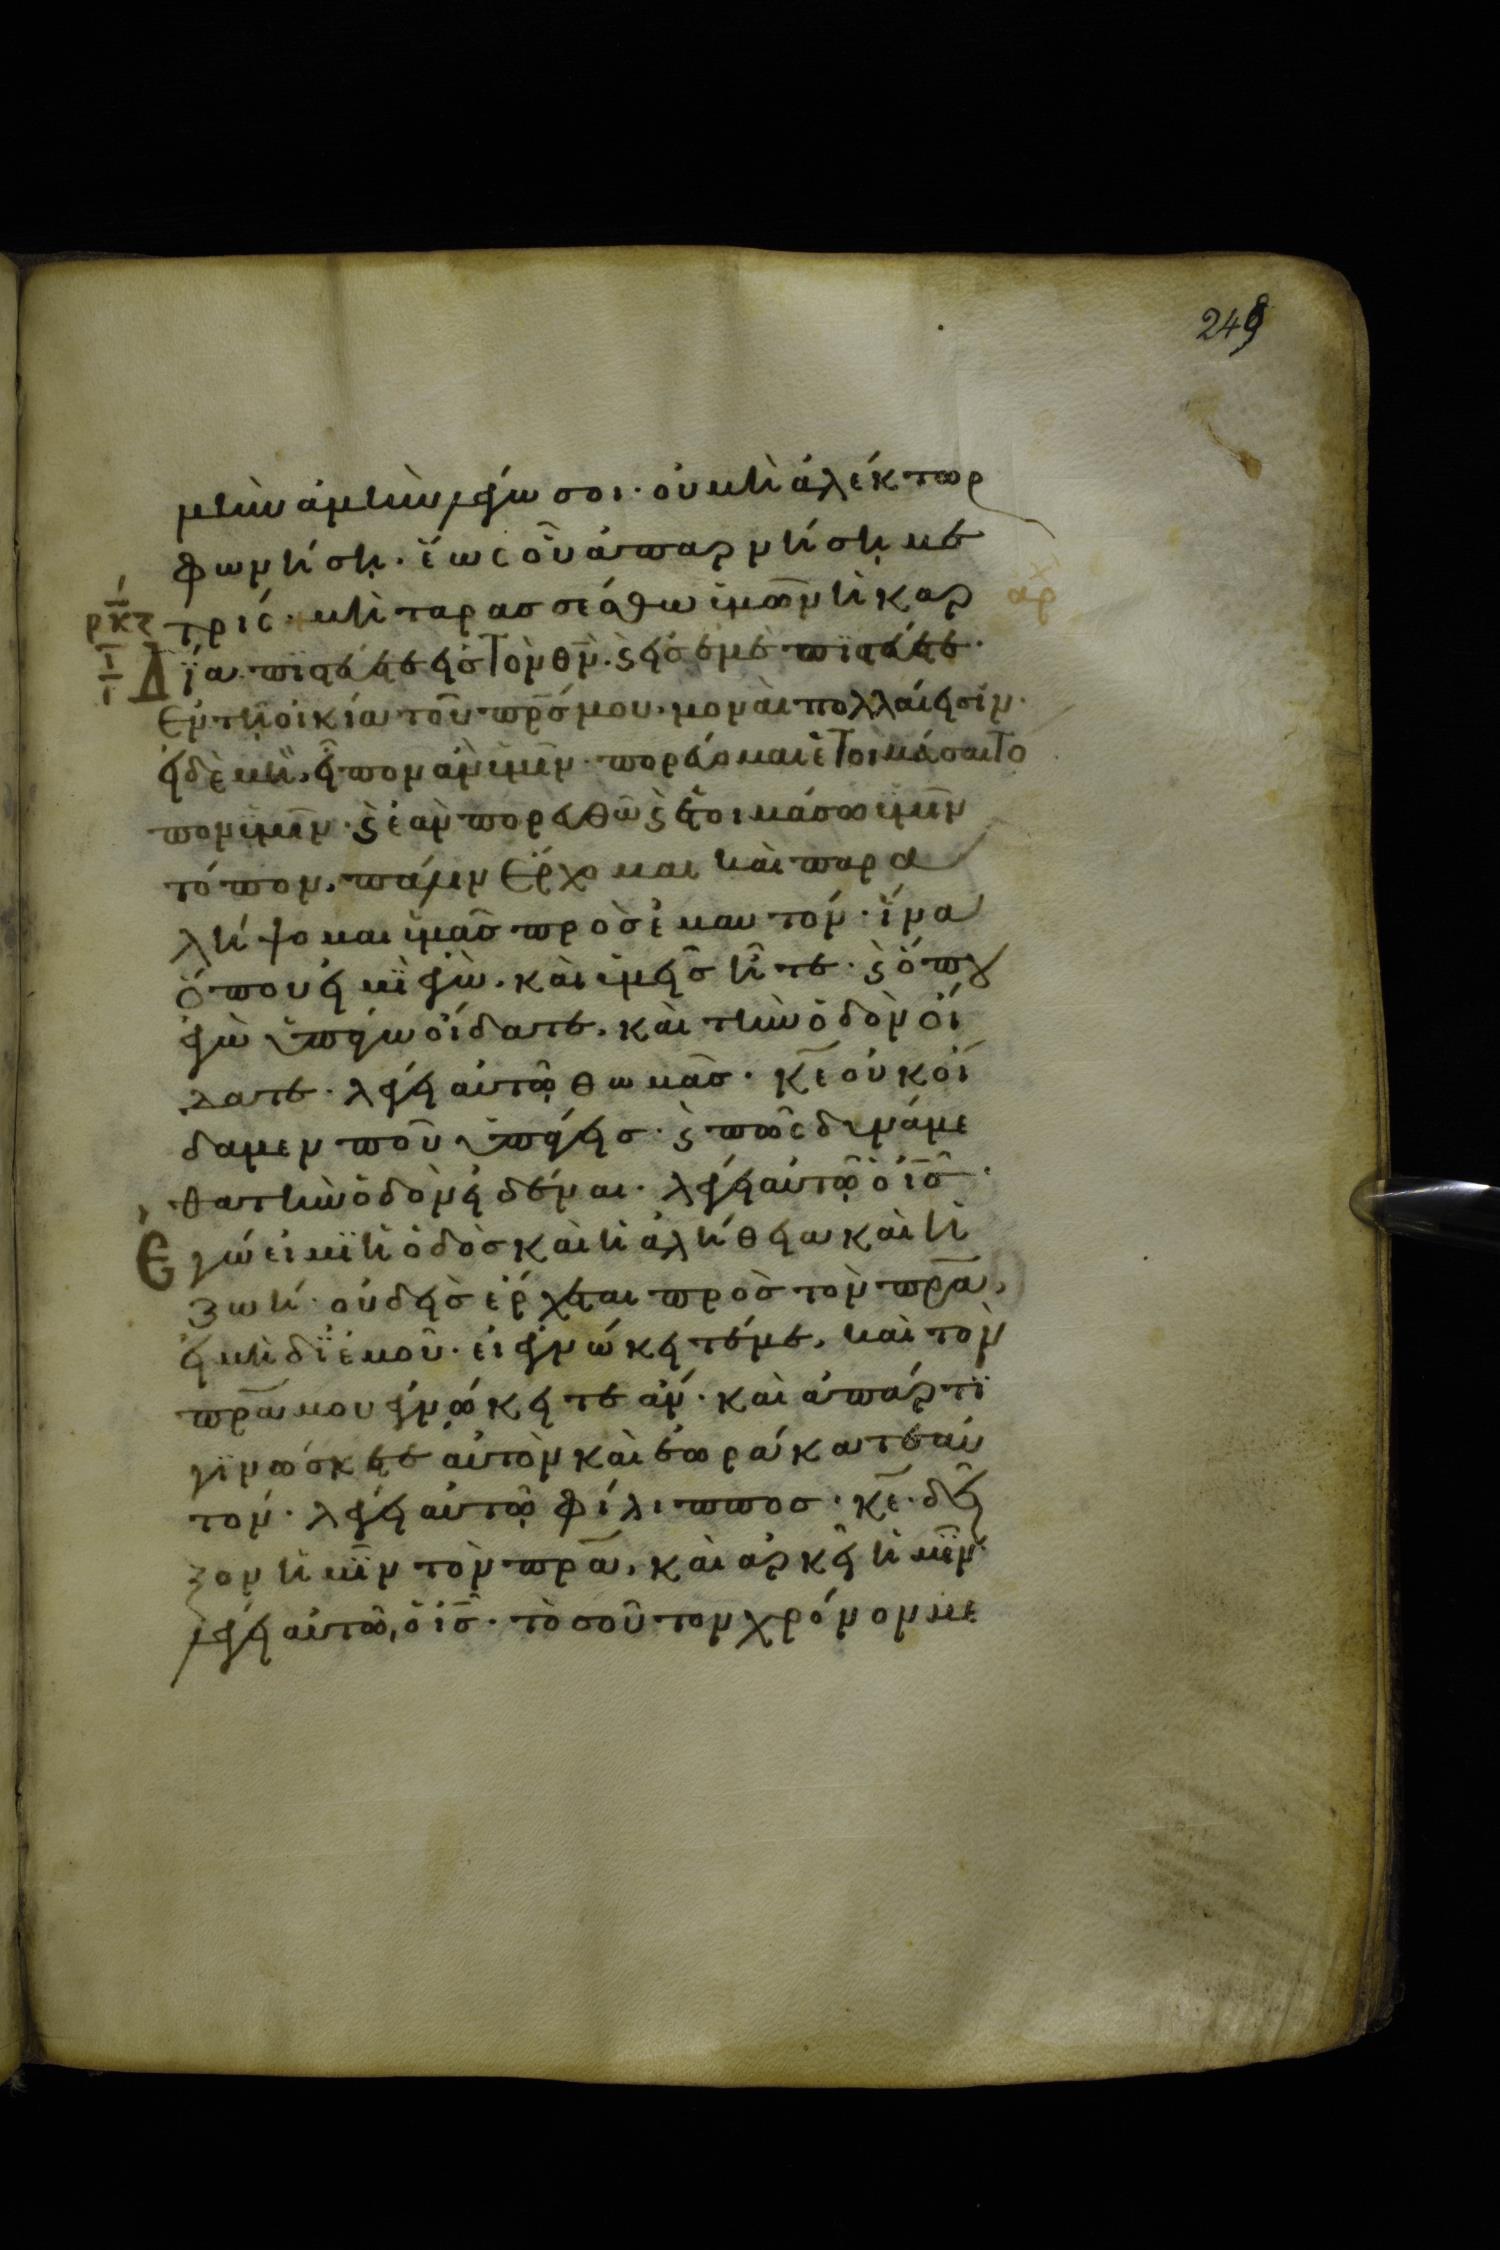 249
μὴν ἀμὴν λέγω σοι· οὐ μὴ ἀλέκτωρ
φωνήση· ἕως οὗ ἀπαρνήση με
τρίς· μὴ ταρασσέσθω ὑμῶν ἡ καρ
δΐα· πϊστεύετε εἰς τὸν θν̄· ϗ εἰς ἐμὲ πϊστεύετε·
ἐν τῆ οἰκία τοῦ πρ̄ς μου, μοναὶ πολλαί εἰσιν·
εἰ δὲ μὴ, εἶπον ἂν ὑμῖν· πορεύομαι ἑτοιμάσαι το
πον ὑμῖν· ϗ ἐὰν πορευθῶ ϗ ἑτοιμάσω ὑμῖν
τόπον, πάλιν ἔρχομαι καὶ παρα
λήψομαι ὑμᾶς πρὸς ἐμαυτόν· ἵνα
ὅπου εἰμὶ ἐγὼ, καὶ ὑμεῖς ἦτε· ϗ ὅπου
ἐγὼ ὑπάγω οἴδατε, καὶ τὴν ὁδὸν οἴ
δατε· λέγει αὐτῶ θωμᾶς· κε̄ οὐκ οἴ
δαμεν ποῦ ὑπάγεις· ϗ πῶς δυνάμε
θα τὴν ὁδὸν εἰδέναι· λέγει αὐτῶ ὁ ις̄·
Ἐγώ εἰμϊ ἡ ὁδὸς καὶ ἡ ἀλήθεια καὶ ἡ
ζωή· οὐδεὶς ἔρχεται πρὸς τὸν πρ̄α,
εἰ μὴ δϊ ἐμοῦ· εἰ ἐγνώκειτέ με, καὶ τὸν
πρ̄α μου ἐγνώκειτε ἄν· καὶ ἀπάρτϊ
γϊνώσκετε αὐτὸν καὶ ἑωράκατε αὐ
τόν· λέγει αὐτῶ φίλιππος· κε̄· δεῖ
ξον ἡμῖν τὸν πρ̄α, καὶ ἀρκεῖ ἡμῖν·
λέγει αὐτῶ, ὁ ις̄· τοσοῦτον χρόνον με
ρκζ
ι
ἀρχ